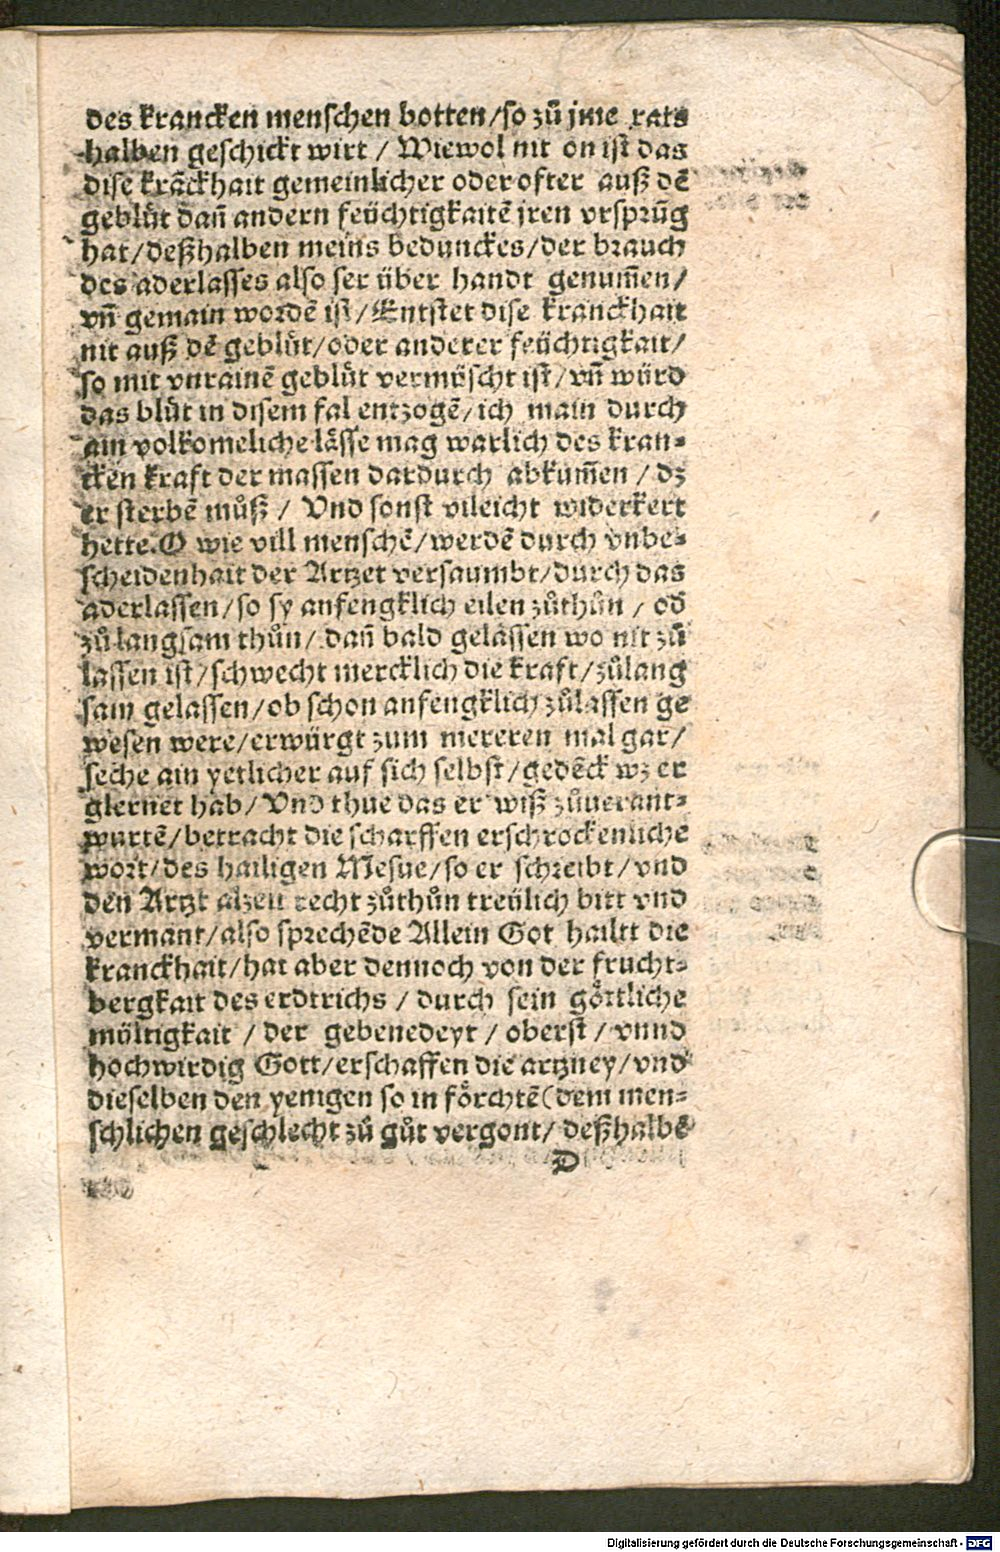 des krancken menschen botten/so zů jme rats
halben geschickt wirt / Wiewol nit on ist das
dise krãckhait gemeinlicher oder ofter auß dẽ
geblůt dañ andern feüchtigkaitẽ jren vrsprũg
hat/deßhalben meins bedunckes/der brauch
des aderlasses also ser über handt genum̃en/
vñ gemain wordẽ ist/Entstet dise kranckhait
nit auß dẽ geblůt/oder anderer feüchtigkait/
so mit vnrainẽ geblůt vermöscht ist/vñ würd
das blůt in disem fal entzogẽ/ich main durch
ain volkomeliche lässe mag warlich des kran-
cken kraft der massen dardurch abkum̃en / dz
er sterbẽ můß / Vnd sonst vileicht widerkert
hette.O wie vill menschẽ/werdẽ durch vnbe-
scheidenhait der Artzet versaumbt/durch das
aderlassen/so sy anfengklich eilen zůthůn / od̃
zů langsam thůn/ dañ bald gelassen wo nit zů
lassen ist/schwecht mercklich die kraft/zůlang
sam gelassen/ob schon anfengklich zůlassen ge
wesen were/erwürgt zum mereren mal gar/
seche ain yetlicher auf sich selbst/gedẽck wz er
glernet hab/Vnd thue das er wiß zůuerant-
wurtẽ/betracht die scharffen erschrockenliche
wort/des hailigen Mesue/so er schreibt/vnd
den Artzt alzeit recht zůthůn treülich bitt vnd
vermant/also sprechẽde Allein Got hailtt die
kranckhait/hat aber dennoch von der frucht-
bergkait des erdtrichs / durch sein göttliche
möltigkait / der gebenedeyt / oberst / vnnd
hochwirdig Gott/erschaffen die artzney/vnd
dieselben den yenigen so in förchtẽ(dem men-
schlichen geschlecht zů gůt vergont/ deßhalbẽ
D
Digitalisierung gefördert durch die Deutsche Forschungsgemeinschaft - DFG